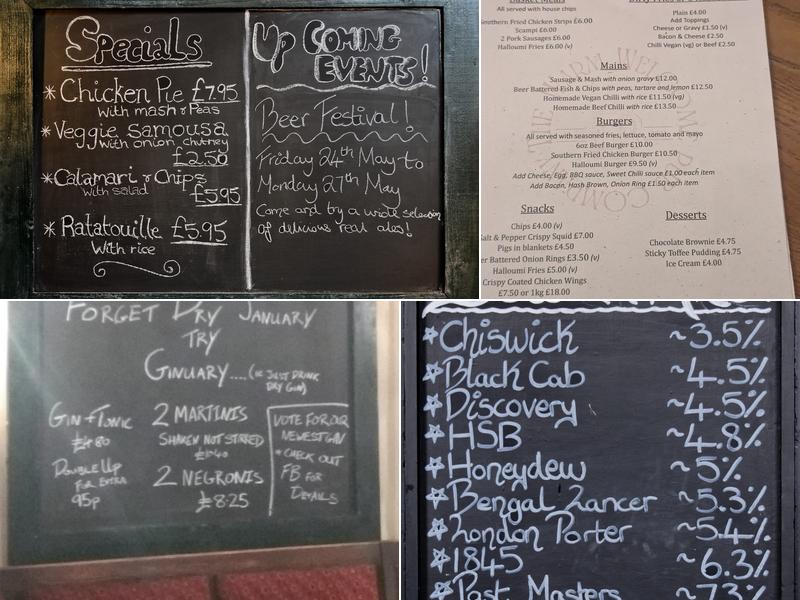 Specials
* Chicken Pie £7.95
with mash & Peas
* Veggie Samousa
with onion chutney
£2.50
* Calamari & Chips
with salad £5.95
* Ratatouille £5.95
With rice
Up Coming
Events!
Beer Festival!
Friday 24th May to
Monday 27th May
Come and try a wide selection
of delicious real ales!
All served with house chips
Southern Fried Chicken Strips £6.00
Scampi £6.00
2 Pork Sausages £6.00
Halloumi Fries £6.00 (v)
Plain £4.00
Add Toppings
Cheese or Gravy £1.50 (v)
Bacon & Cheese £2.50
Chilli Vegan (vg) or Beef £2.50
Mains
Sausage & Mash with onion gravy £12.00
Beer Battered Fish & Chips with peas, tartare and lemon £12.50
Homemade Vegan Chilli with rice £11.50 (vg)
Homemade Beef Chilli with rice £13.50
Burgers
All served with seasoned fries, lettuce, tomato and mayo
6oz Beef Burger £10.00
Southern Fried Chicken Burger £10.50
Halloumi Burger £9.50 (v)
Add Cheese, Egg, BBQ sauce, Sweet Chilli sauce £1.00 each item
Add Bacon, Hash Brown, Onion Ring £1.50 each item
Snacks
Chips £4.00 (v)
Salt & Pepper Crispy Squid £7.00
Pigs in blankets £4.50
er Battered Onion Rings £3.50 (v)
Halloumi Fries £5.00 (v)
Crispy Coated Chicken Wings
£7.50 or 1kg £18.00
Desserts
Chocolate Brownie £4.75
Sticky Toffee Pudding £4.75
Ice Cream £4.00
FORGET DRY JANUARY
TRY
GINUARY.... (IE JUST DRINK
DRY GIN)
GIN & TONIC
£4.80
DOUBLE UP
FOR EXTRA
95p
2 MARTINIS
SHAKEN NOT STIRRED
£10.40
2 NEGRONIS
£8.25
VOTE FOR OUR
NEWEST GIN
* CHECK OUT
FB FOR
DETAILS
Chiswick ~3.5%
Black Cab ~4.5%
Discovery ~4.5%
HSB ~4.8%
Honeydew ~5%
Bengal Lancer ~5.3%
London Porter ~5.4%
1845 ~6.3%
Past Masters ~7.3%